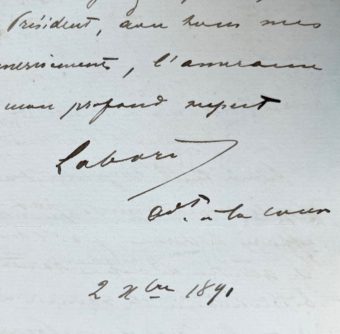 Président, avec tous mes
remerciements, l'assurance
mon profond respect
Labori
avt. à la cour
2 Xbre 1891